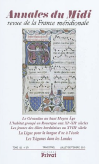 Annales du Midi
revue de la France méridionale
Le Gévaudan au haut Moyen Âge
L'habitat groupé en Rouergue aux XIe-XIVe siècles
Les jeunes des élites bordelaises au XVIIIe siècle
La Ligue pour la langue d'oc à l'école
Les Tsiganes dans les Landes
Privat